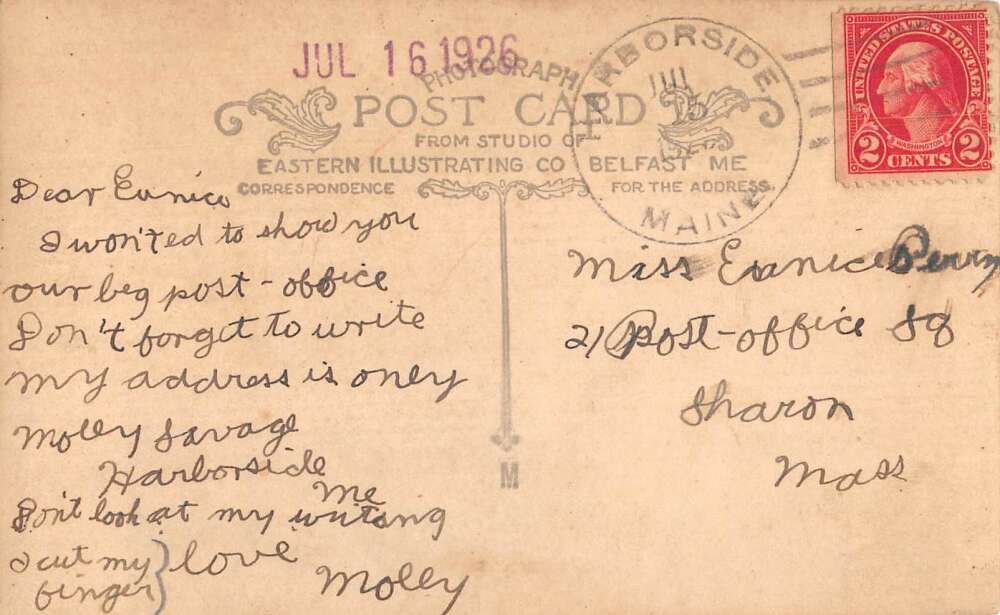 JUL 16 1926
PHOTOGRAPH
POST CARD
FROM STUDIO OF
EASTERN ILLUSTRATING CO BELFAST ME
CORRESPONDENCE
FOR THE ADDRESS.
HARBORSIDE
JUL
15
MAINE
UNITED STATES POSTAGE
WASHINGTON
2 CENTS 2
Dear Eunice
I won'ted to show you
our beg post-office
Don't forget to write
my address is onely
Molly Savage
Harborside
Me
Don't look at my writing
I cut my
finger
love
Molly
M
Miss Eunice Perry
21 Post-office Sq
Sharon
Mass